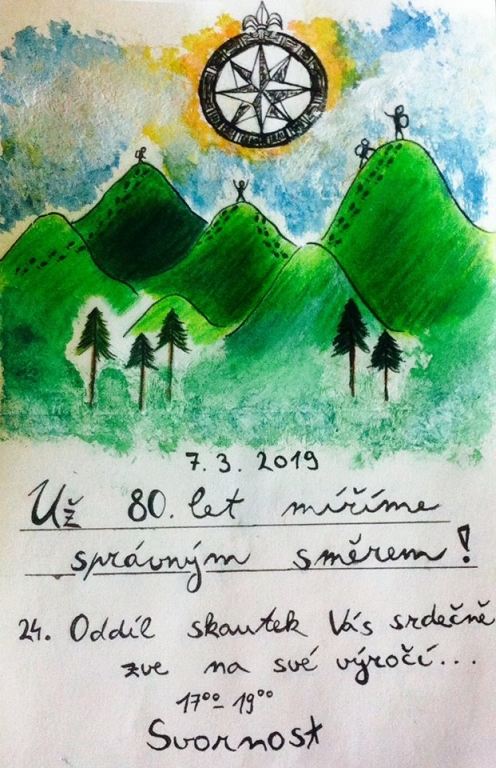 7. 3. 2019
Už 80. let míříme
správným směrem!
24. Oddíl skautek Vás srdečně
zve na své výročí...
17°° - 19°°
Svornost